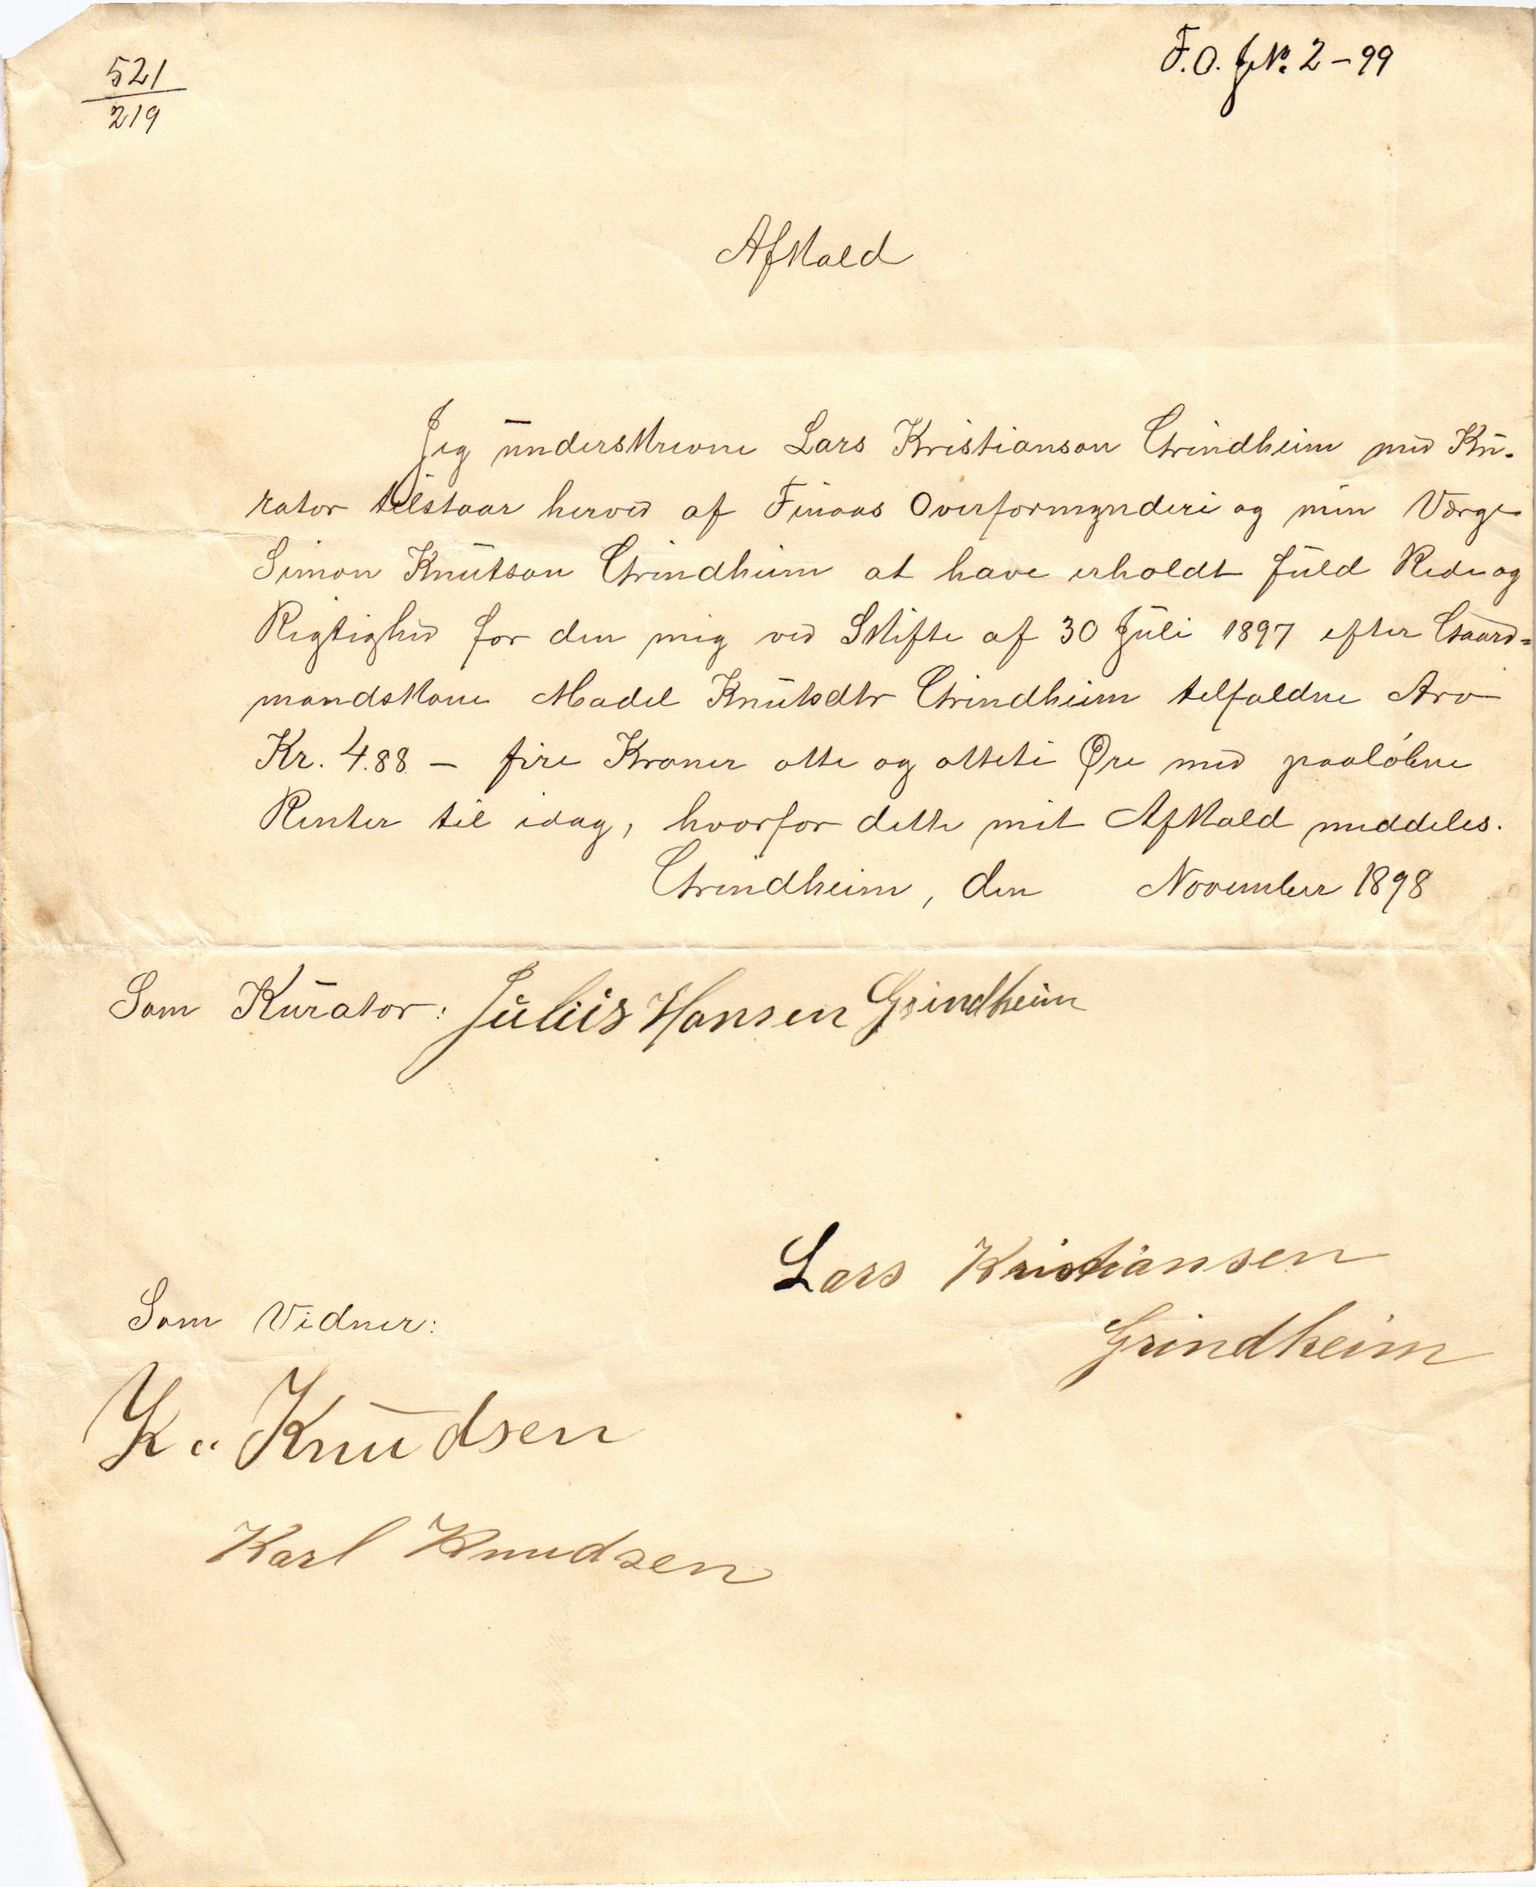 521
219
F.O. J№ 2-99
Afkald
Jeg underskrevne Lars Kristianson Grindheim med Ku-
rator tilstaar herved af Finaas Overformynderi og min Værge
Simon Knutson Grindheim at have erholdt fuld Rede og
Rigtighed for den mig ved Skifte af 30 Juli 1897 efter Gaard=
mandskone Madel Knutsdtr Grindheim tilfaldne Arv
Kr. 4.88 - fire Kroner otte og otteti Øre med paaløbne
Renter til idag, hvorfor dette mit Afkald meddeles.
Grindheim, den November 1898
Som Kurator: Julius Hansen Grindheim
Lars Kristiansen
Grindheim
Som Vidner:
K. Knudsen
Karl Knudsen